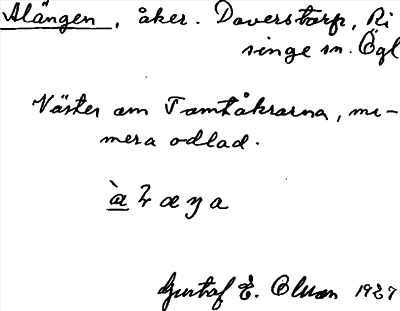 Alängen, åker. Daverstorp, Ri
singe sn. Ögl
Väster om Tomtåkrarna, nu-
mera odlad.
Gustaf E. 1927